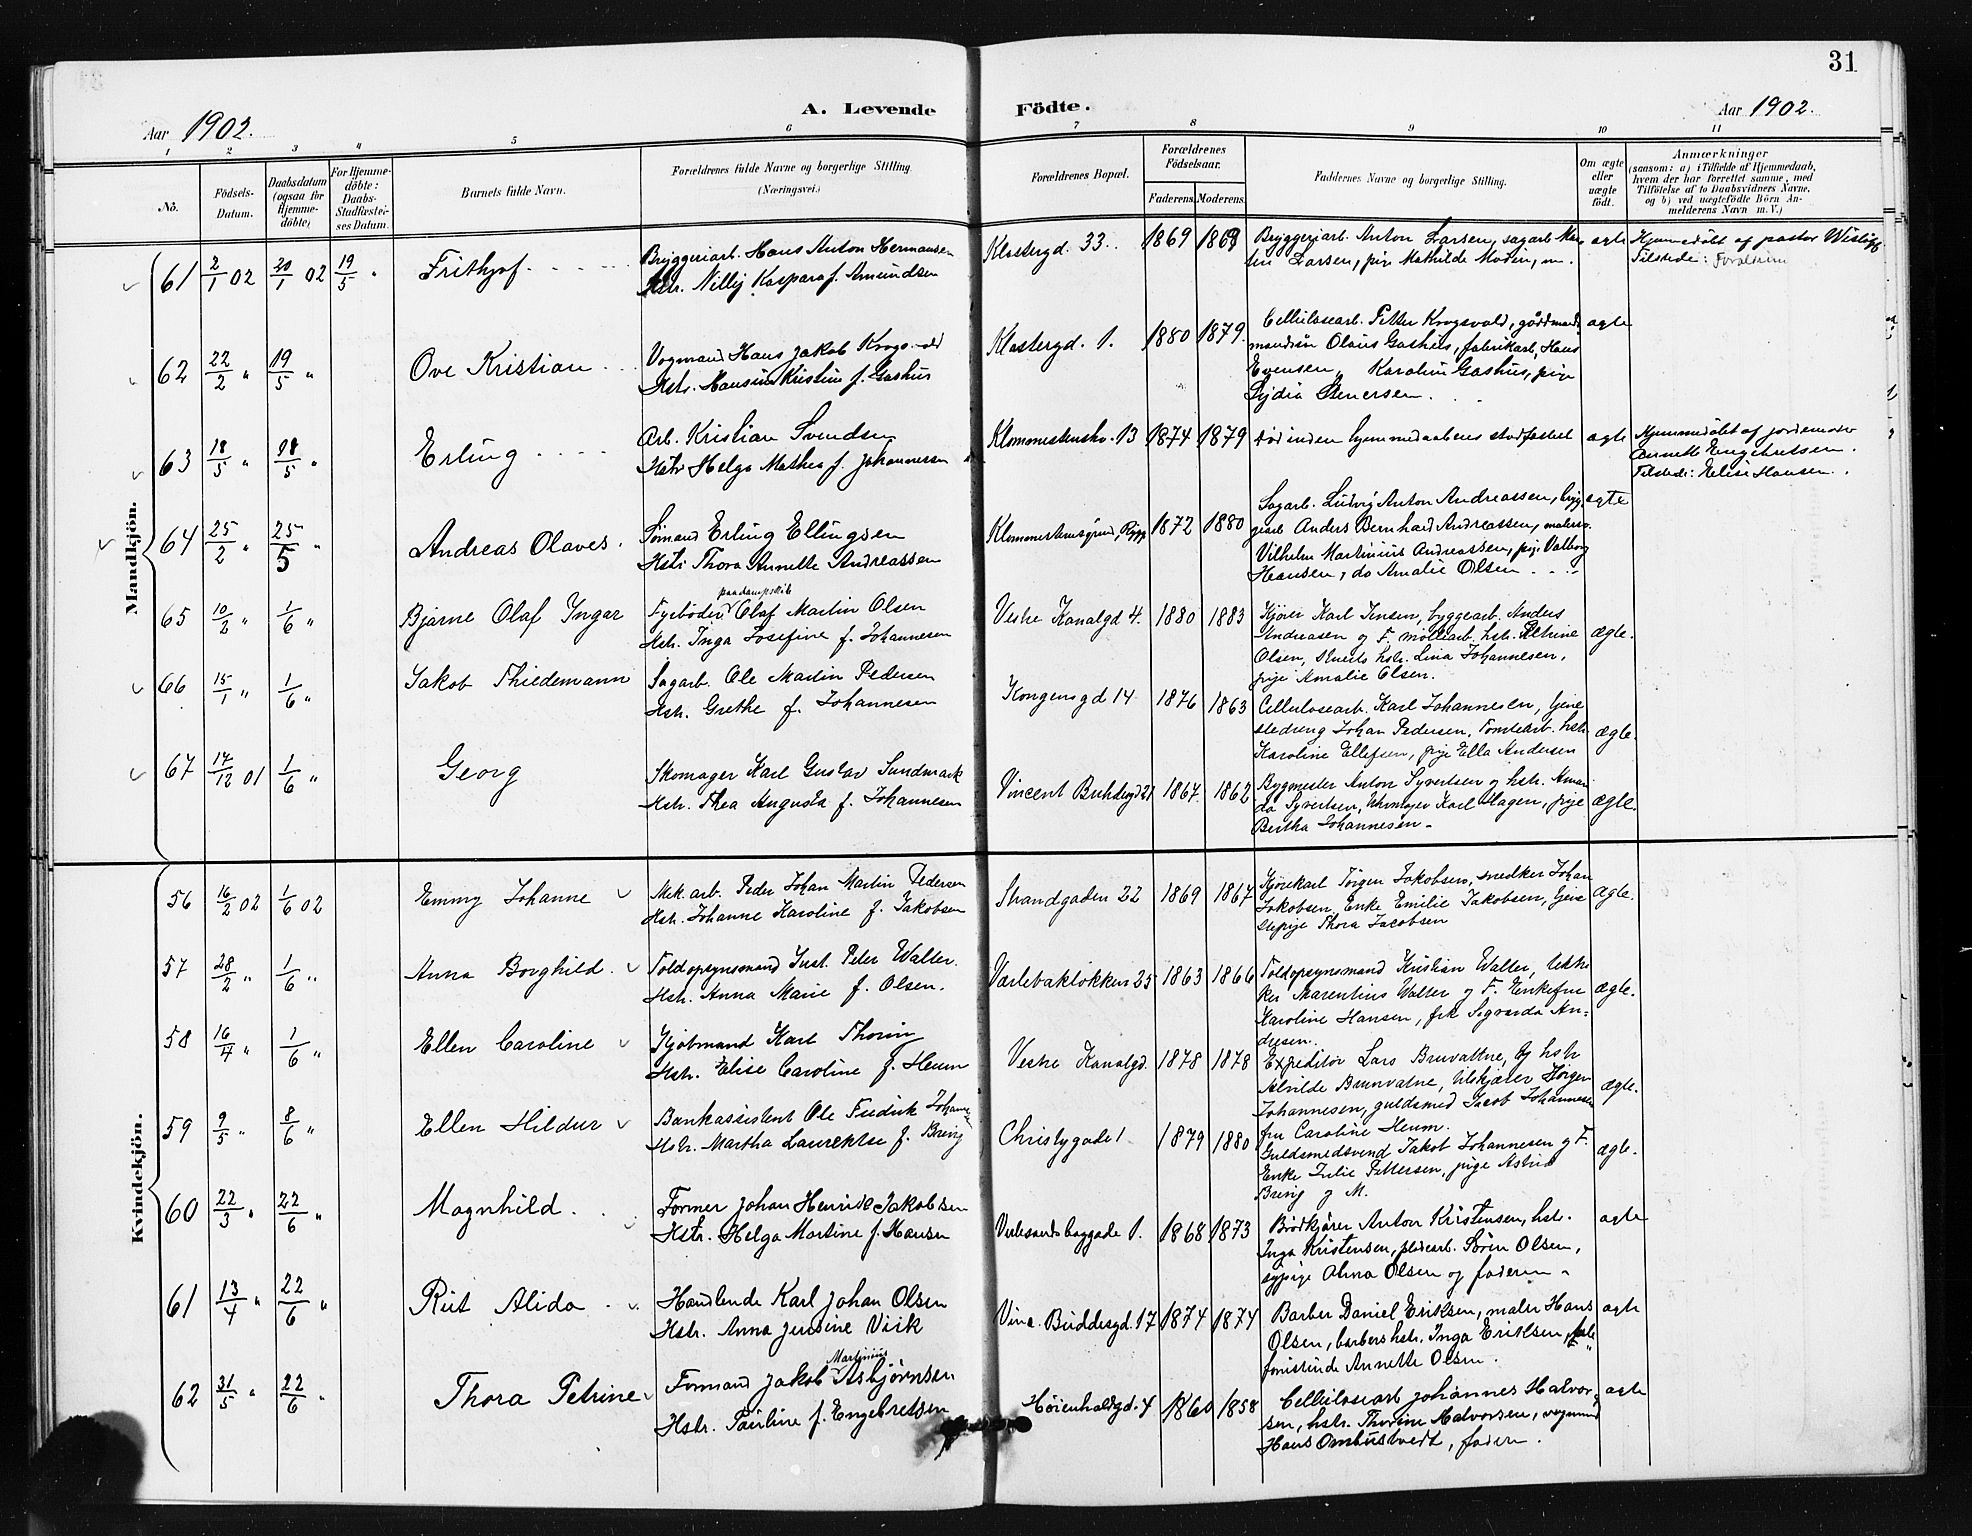 31
A. Levende Födte.
Aar 1902.
Aar 1902.
1 2 3 4 5 6 7 8 9 10 11
No.
Födsels-Datum.
Daabsdatum (ogsaa for Hjemme-döbte)
For Hjemme-döbte: Daabs-Stadfæstel-ses Datum.
Barnets fulde Navn.
Forældrenes fulde Navne og borgerlige Stilling. (Næringsvei.)
Forældrenes Bopæl.
Forældrenes Födselsaar.
Faderens. Moderens.
Faddernes Navne og borgerlige Stilling.
Om ægte eller uægte födt.
Anmærkninger
(saasom: a) i Tilfælde af Hjemmedaab, hvem der har forrettet samme, med Tilföielse af to Daabsvidners Navne, og b) ved uægtefödte Börn An-melderens Navn m. V.)
Mandkjön.
61 2/1 02 20/1 02 19/5 " Frithjof
Bryggeriarb. Hans Anton Hermansen
Hstr. Nilly Kaspara f. Amundsen
Klostergd. 33. 1869 1869
Bryggeriarb. Anton Larsen, sagarb. Mar-
tin Larsen, pige Mathilde Moten, m.
ægte
Hjemmedøbt af pastor Wisløff
Tilstede: Forældrene
62 22/2 " 19/5 " Ove Kristian
Vognmand Hans Jakob Krogsvold
Hstr. Hansine Kristine f. Gashus
Klostergd. 1. 1880 1879.
Cellulosearb. Petter Krogsvold, gårdmand
Olaus Gashus, fabrikarb. Hans
Evensen, Karoline Gashus, pige
Lydia Stenersen.
ægte
63 18/5 " 18/5 " Erling
Arb. Kristian Svendsen
Hstr. Helga Mathea f. Johannessen
Klommestenshv. 13 1874 1879
død inden hjemmedaabens stadfæstet
ægte
Hjemmedøbt af jordemoder
Annette Engebretsen.
Tilstede: Elise Hansen.
64 25/2 " 25/5 " Andreas Olaves.
Sømand Erling Ellingsen
Hstr. Thora Annette Andreassen
Klommestensgrund, 1872 1880
Sagarb. Ludvig Anton Andreassen, brygg
Anders Bernhard Andreassen, malersv.
Vilhelm Martinius Andreassen, pige Valborg
Hansen, do Amalie Olsen
ægte
65 10/2 " 1/6 " Bjarne Olaf Yngar
paadampskib
Fyrbøder Olaf Martin Olsen
Hstr. Inga Josefine f. Johannesen
Vestre Kanalgd 4. 1880 1883
Kjører Karl Jensen, byggearb. Anders
Andreasen og F. møllearb. hstr. Petrine
Olsen, hstr. Lina Johannesen,
pige Amalie Olsen.
ægte.
66 15/1 " 1/6 " Jakob Thiedemann
Sagarb. Ole Martin Pedersen
Hstr. Grethe f. Johannesen
Kongensgd 14 1876 1863
Cellulosearb. Karl Johannesen, tjene
stedreng Johan Pedersen, Tomtearb. hstr.
Karoline Ellefsen, pige Ella Andersen
ægte.
67 17/12 01 1/6 " Georg
Skomager Karl Gustav Sundmark
Hstr. Thea Augusta f. Johannesen
Vincent Buddesgd 21 1867 1862
Bygmester Anton Syvertsen og hstr. Aman
da Syvertsen, Uhrmager Karl Hagen, pige
Bertha Johannesen.
ægte.
Kvindekjön.
56 16/2 02 1/6 02 Emmy Johanne
Mek. arb. Peder Johan Martin Pedersen
Hstr. Johanne Karoline f. Jakobsen
Strandgaden 22 1869 1867
Kjørekarl Jørgen Jakobsen, snedker Johan
Jakobsen, Enke Emilie Jakobsen, tjene
stepige Thora Jacobsen
Ægte.
57 28/2 " 1/6 " Anna Borghild.
Toldopsynsmand Just. Peter Walter.
Hstr. Anna Marie f. Olsen.
Varlebakløkken 25 1863 1866
Toldopsynsmand Kristian Walter,
Marentius Walter og F. Enkefru
Karoline Hansen, frk Sigvarda An-
dresen.
Ægte.
58 16/4 " 1/6 " Ellen Caroline
Kjøbmand Karl Thorin
Hstr. Elise Caroline f. Heum
Vestre Kanalgd. 1878 1878
Expeditør Lars Bruvattne, og hstr
Alvilde Brunvatne, Jørgen
Johannesen, guldsmed Jacob Johannesen
fru Caroline Heum.
ægte.
59 9/5 " 8/6 " Ellen Hildur
Bankassistent Ole Fredrik Johannesen
Hstr. Martha Laurentse f. Bring
Christygade 1 1879 1880
Guldsmedsvend Jakob Johannesen og F.
Enke Julie Pettersen, pige Astrid
Bring og M.
ægte.
60 22/3 " 22/6 " Magnhild.
Former Johan Henrik Jakobsen
Hstr. Helga Martine f. Hansen
Verlesandsbaggade 1. 1868 1873
Brødkjører Anton Kristensen, hstr.
Inga Kristensen, pladearb. Søren Olsen,
sypige Alma Olsen og faderen.
ægte
61 13/4 " 22/6 " Rut Alida
Handlende Karl Johan Olsen
Hstr. Anna Jensine Viik
Vinc. Buddesgd. 17 1874 1874
Barber Daniel Eriksen, maler Hans
Olsen, barbers hstr. Inga Eriksen,
Annette Olsen.
ægte
62 31/5 " 22/6 " Thora Petrine
Martinius
Formand Jakob Asbjørnsen
Hstr. Pauline f. Engebretsen
Høienhaldgd. 4 1860 1858
Cellulosearb Johannes Halvor-
sen, hstr. Thorine Halvorsen, vognmd
Hans Ombustvedt, faderen.
ægte